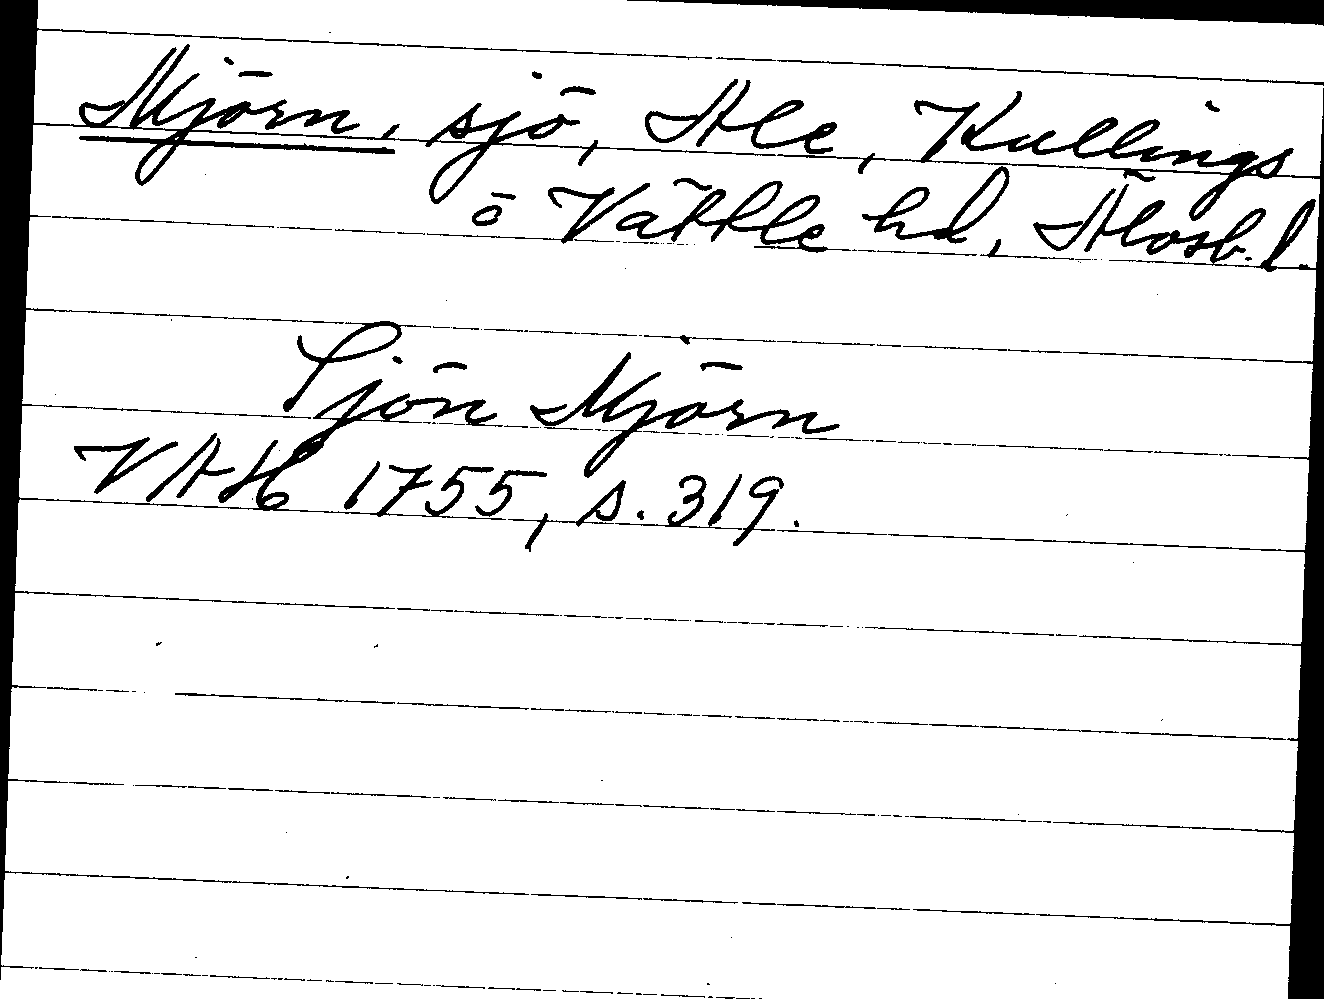 Mjörn, sjö, Ale, Kullings
o Vättle hd, Älvsb. l.
Sjön Mjörn
VAH 1755, s. 319.